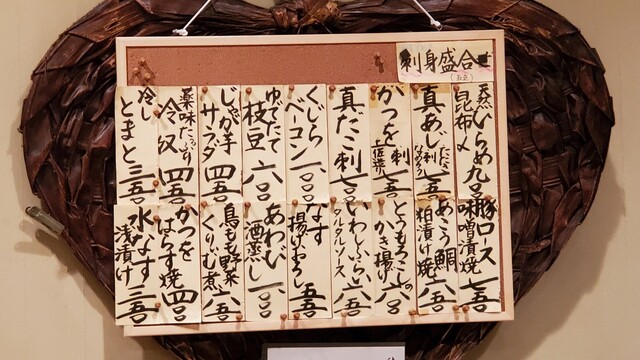 刺身盛合
天然ひらめ
昆布〆
九〇〇
真あじ
たたき
刺
なめろう
七五〇
かつを
刺
土佐造
七五〇
真だこ刺
七〇〇
くじら
ベーコン
一〇〇〇
ゆでたて
枝豆
六〇〇
じゃが芋
サラダ
四五〇
薬味たっぷり
冷奴
四五〇
冷し
とまと
三五〇
豚ロース
味噌漬焼
七五〇
あこう鯛
粕漬け焼
六五〇
とうもろこしの
かき揚げ
六〇〇
いわしふらい
タルタルソース
六五〇
なす
揚げおろし
五五〇
あわび
酒蒸し
一〇〇〇
鳥もも野菜
くりーむ煮
六五〇
かつを
はらす焼
四〇〇
水なす
浅漬け
三五〇